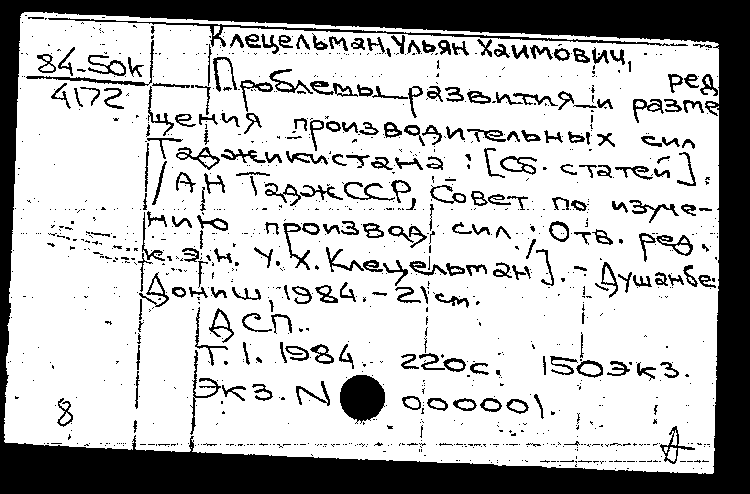 Клецельман, Ульян Хаимович, ред
84-50к
4172
Проблемы развития и разме
щения производительных сил
Таджикистана : [Сб. статей].
/ АН ТаджССР, Совет по изуче-
нию производ. сил ; Отв. ред.
к.э.н. У.Х. Клецельман]. - Душанбе:
Дониш, 1984. - 21 см.
ДСП..
Т. 1. 1984 220с. 150экз.
Экз. N 000001.
8